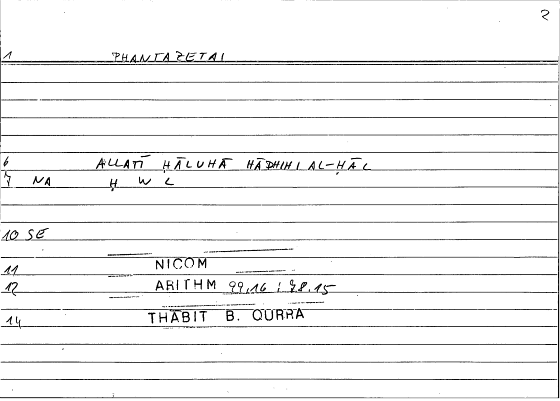 2
1 PHANTAZETAI
6 ALLATĪ ḤĀLUHĀ HĀDHIHI AL-ḤĀL
7 NA Ḥ W L
10 SE
11 NICOM
12 ARITHM 99,16 : 98.15
14 THĀBIT B. QURRA